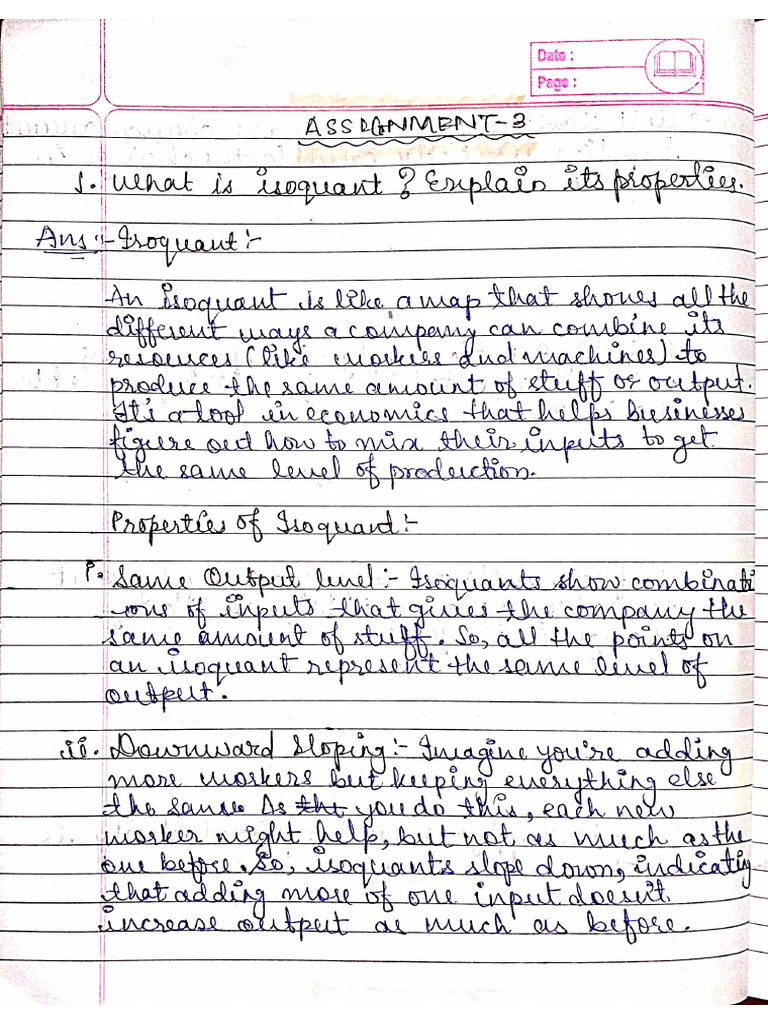 Date :
Page :
ASSIGNMENT-3
1. What is isoquant? Explain its properties.
Ans :- Isoquant :-
An isoquant is like a map that shows all the
different ways a company can combine its
resources (like workers and machines) to
produce the same amount of stuff or output.
It's a tool in economics that helps businesses
figure out how to mix their inputs to get
the same level of production.
Properties of Isoquant :-
i. Same Output level :- Isoquants show combinati
ions of inputs that gives the company the
same amount of stuff. So, all the points on
an isoquant represent the same level of
output.
ii. Downward Sloping :- Imagine you're adding
more workers but keeping everything else
the same As tht you do this, each new
worker might help, but not as much as the
one before. So, isoquants slope down, indicating
that adding more of one input doesn't
increase output as much as before.